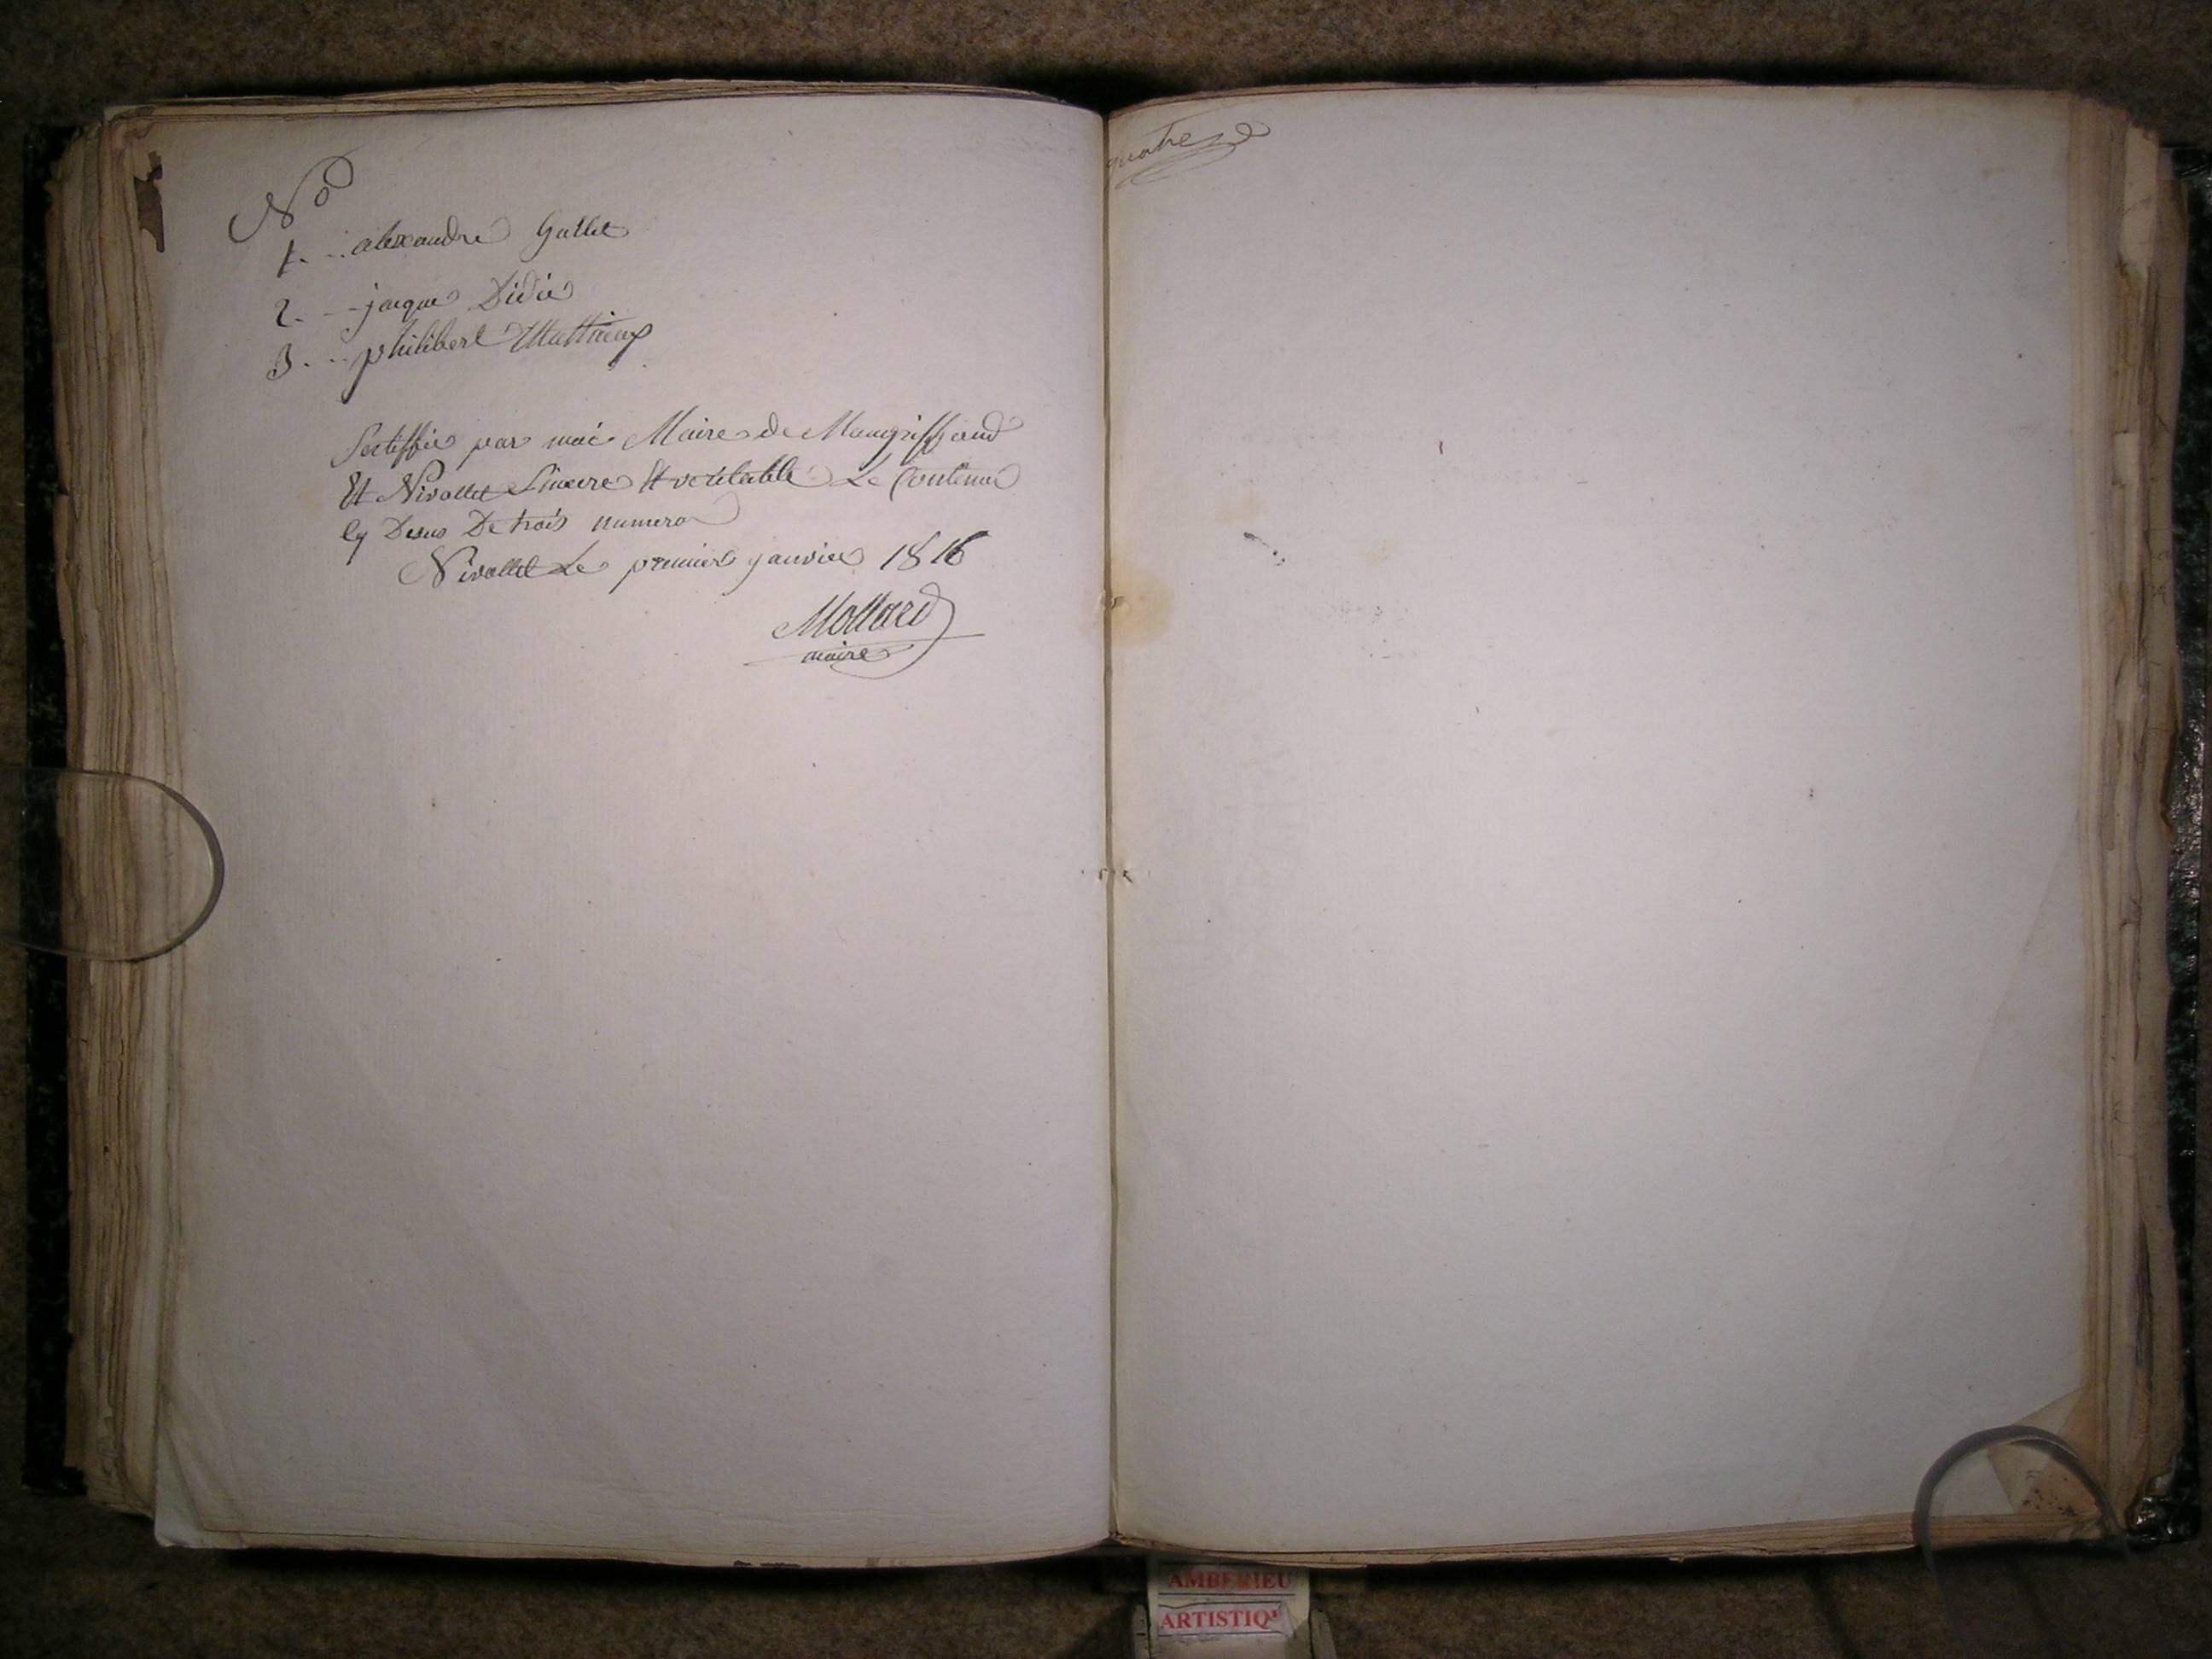 No
1. .. alexandre Gallet
2. - - jaque Didié
3. .. philibert Matthieux
Sertiffié par moi Maire de Mongriffond
Et Nivollet Sincere Et veritable Le Contenu
Cy Desus De trois numero
Nivollet Le premier janvier 1816
Mollard
maire
quatre
AMBERIEU
ARTISTIQ